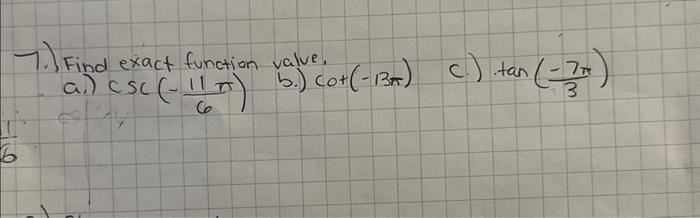 7.) Find exact function value.
a.) csc(-11π/6) b.) cot(-13π) c.) tan(-7π/3)
1/6